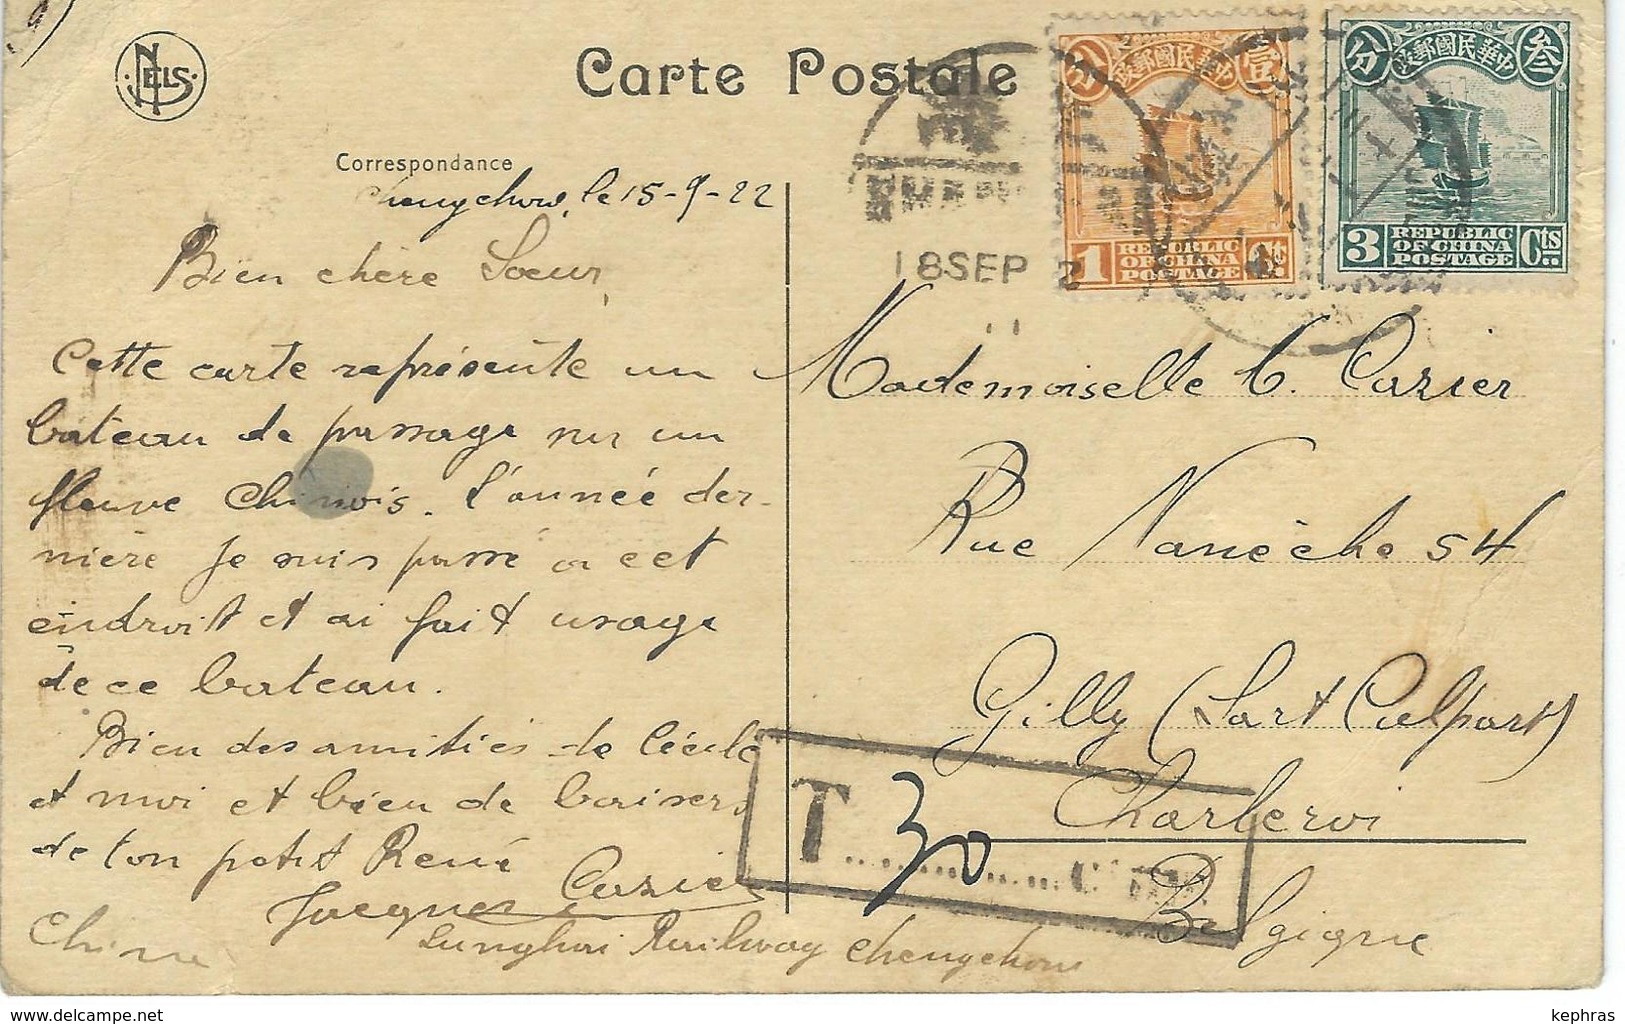 NELS
Carte Postale
Correspondance
Chengchow, le 15-9-22
Bien chère Soeur,
Cette carte représente un
bateau de passage sur un
fleuve Chinois. L'année der-
nière je suis passé à cet
endroit et ai fait usage
de ce bateau.
Bien des amitiés de Cécile
et moi et bien de baisers
de ton petit René
Jacques Cazier
Lunghai Railway Chengchow
Chine
中華民國郵政
壹 分
1 REPUBLIC OF CHINA POSTAGE Ct.
中華民國郵政
叁 分
3 REPUBLIC OF CHINA POSTAGE Cts
18SEP 2
Mademoiselle C. Cazier
Rue Vanèche 54
Gilly (Sart Culpart)
Charleroi
Belgique
T 30 C
kephras